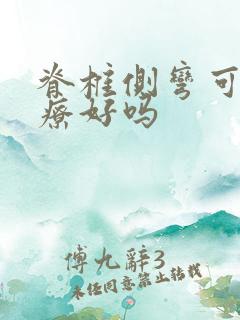 脊柱侧弯可
疗好吗
傅九辭3
未经同意禁止转载